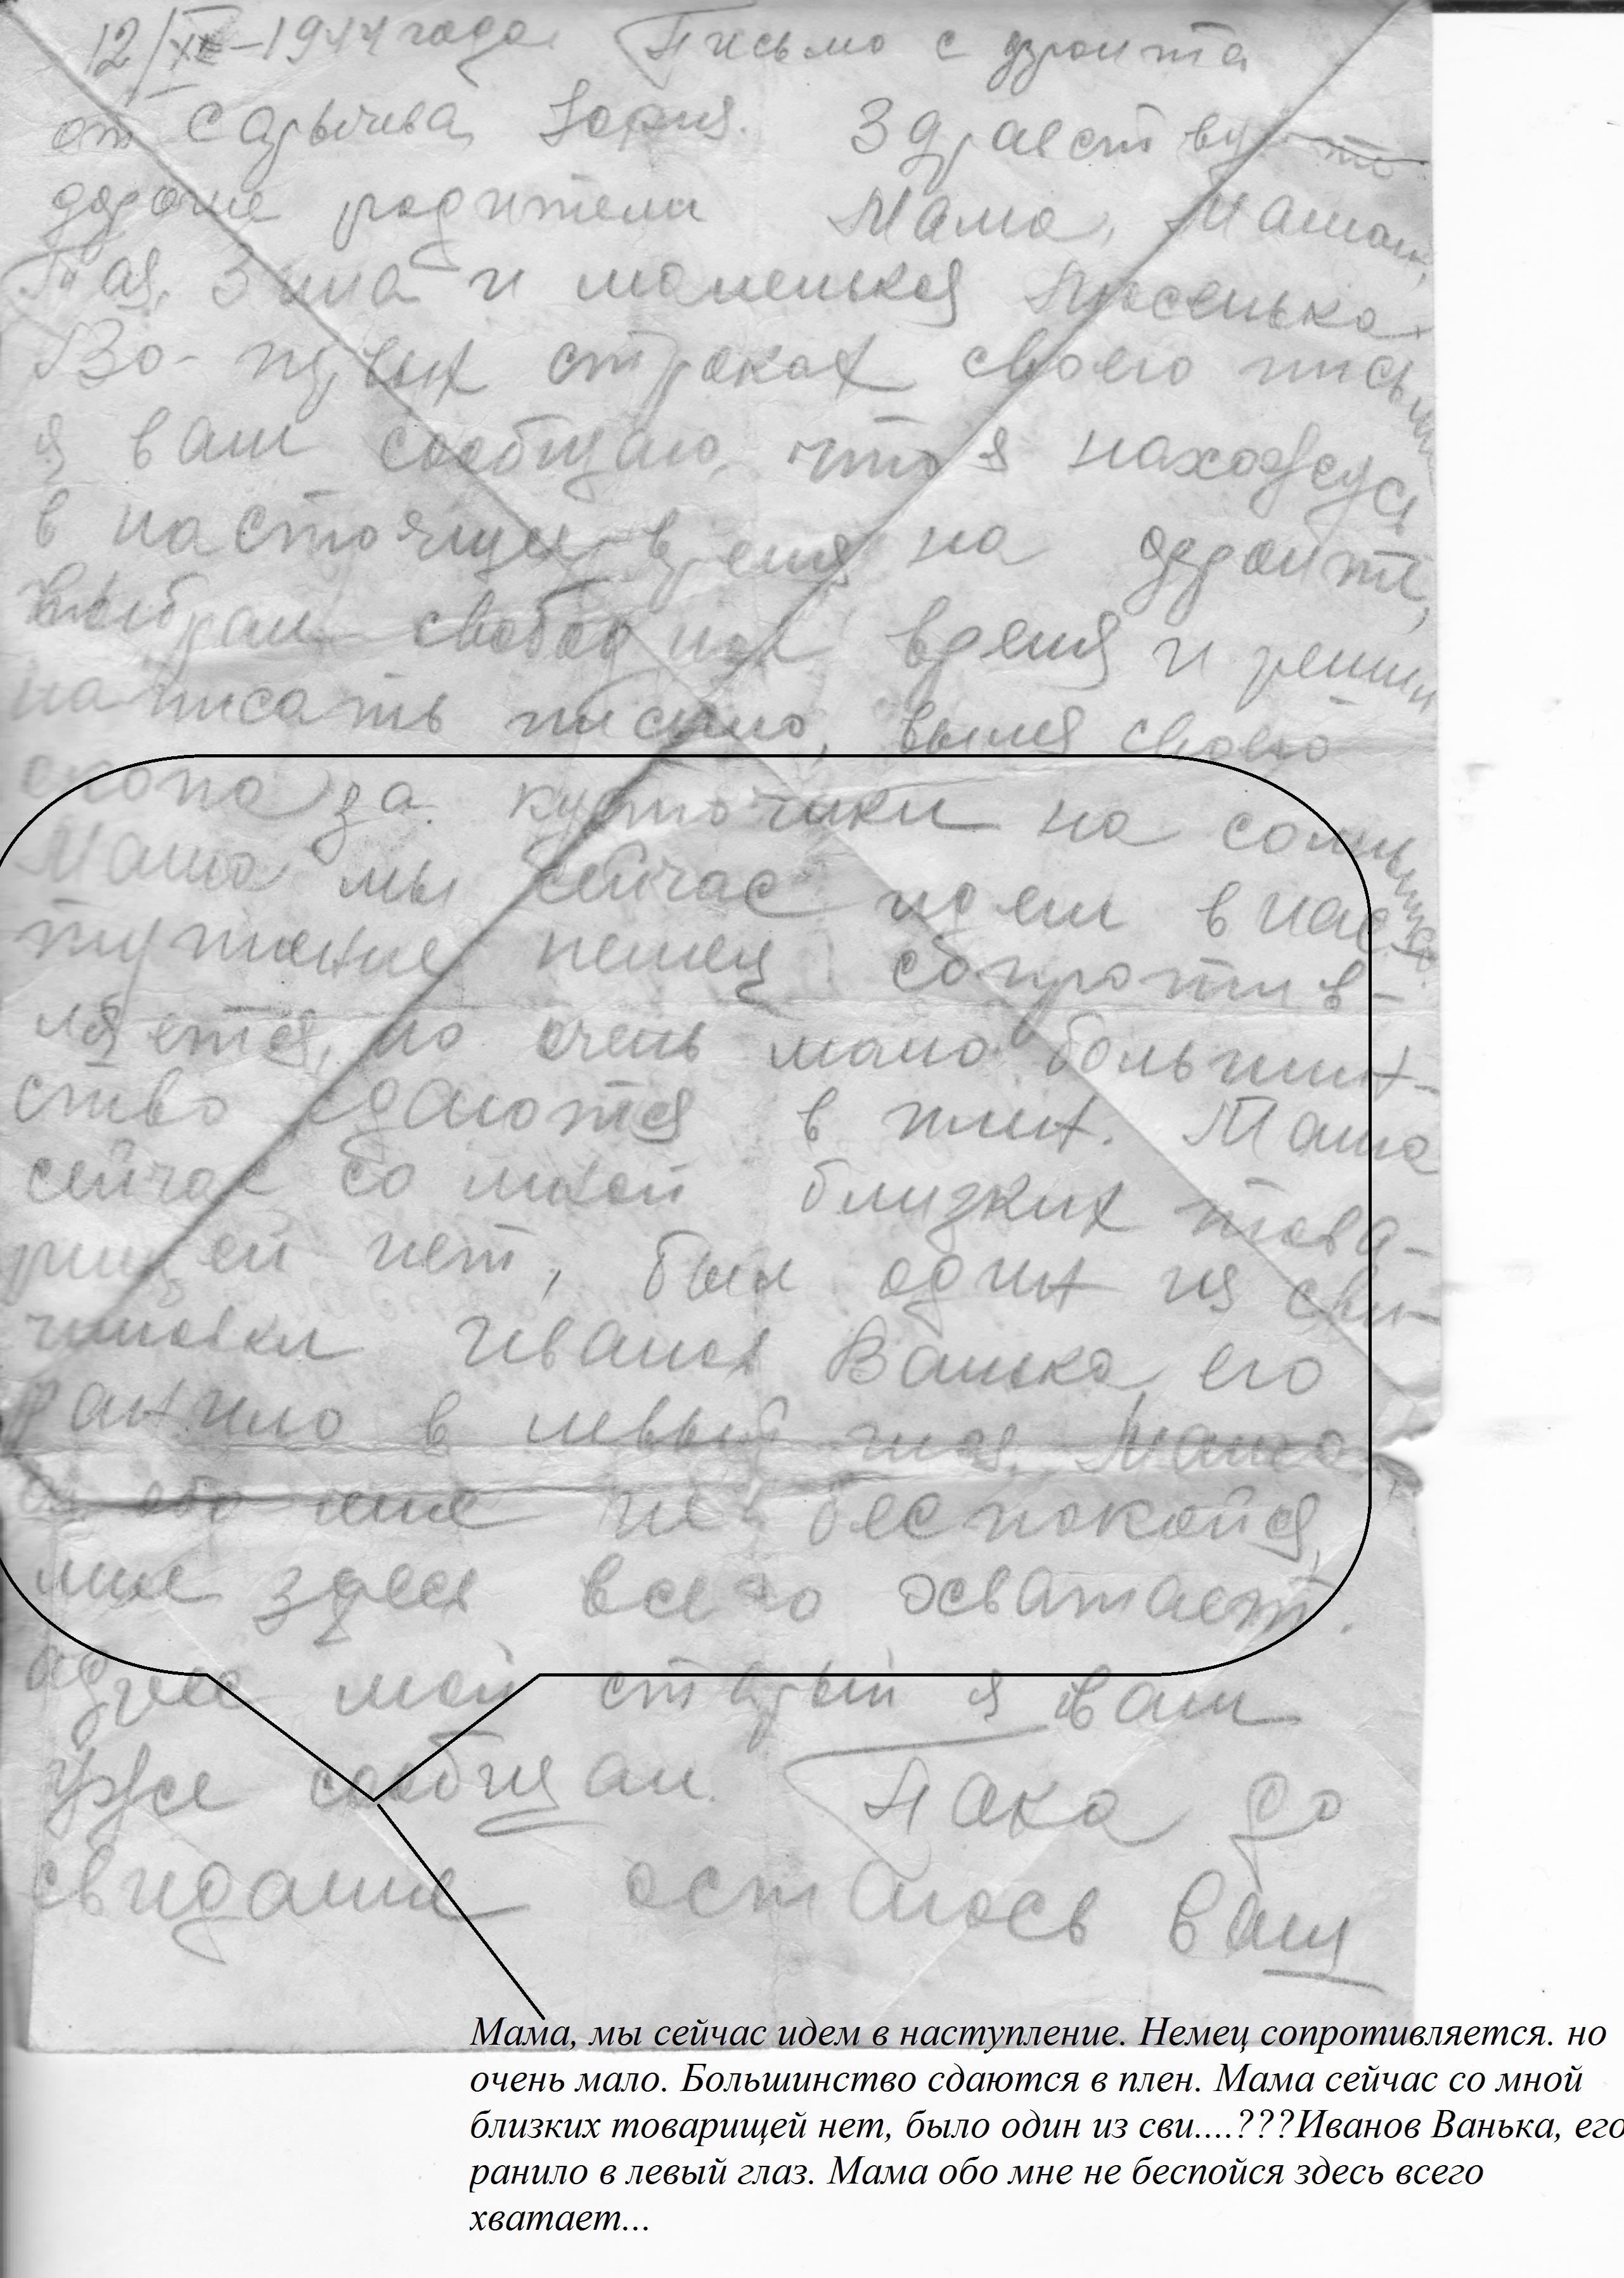 12/ -1944 года. Письмо с фронта
от Сарычева Юрия. Здравствуйте
дорогие родители Мама,
Тая, Зина и маленькая Люсенька
Во-первых строках своего письма
я вам сообщаю, что я нахожусь
в настоящее время на фронте,
выбрал свободное время и решил
написать письмо,
окопа за кусточики на солнышко.
Мама мы сейчас идем в нас-
тупление немец сопротив-
ляется, но очень мало большин-
ство сдаются в плен. Мама
сейчас со мной близких това-
рищей нет, был один из сви-
Иванов Ванька, его
ранило в левый глаз. Мама
обо мне не беспокойся,
мне здеся всего хватает.
адрес мой старый я вам
уже сообщал. Пака до
свидание остаюсь ваш
Мама, мы сейчас идем в наступление. Немец сопротивляется. но
очень мало. Большинство сдаются в плен. Мама сейчас со мной
близких товарищей нет, было один из сви....???Иванов Ванька, его
ранило в левый глаз. Мама обо мне не беспойся здесь всего
хватает...